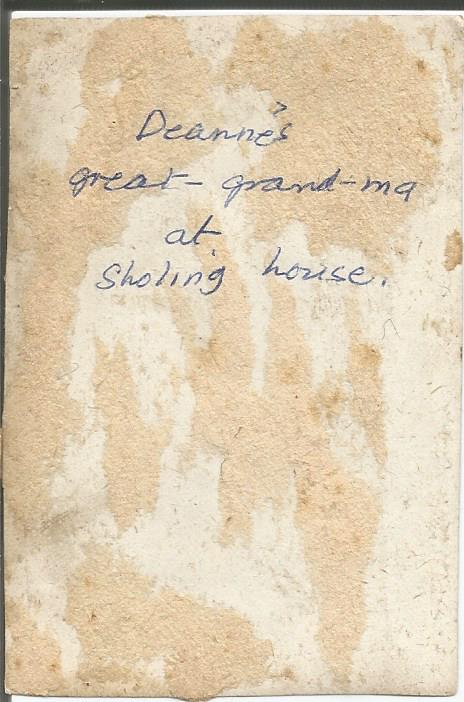 Deanne's
great- grand-ma
at
Sholing house.